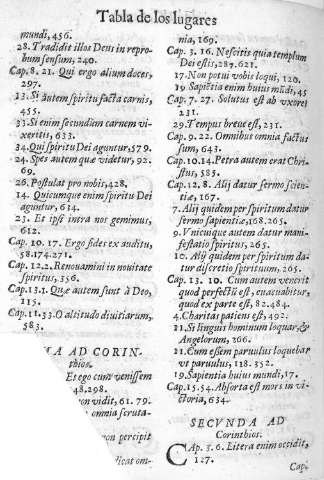 Tabla de los lugares
mundi, 456.
28. Tradidit illos Deus in repro-
bum sensum, 240.
Cap. 8. 21. Qui ergo alium doces,
297.
13. Si autem spiritu facta carnis,
455.
33. Si enim secundiem carnem vi-
xeritis, 633.
34. Qui spiritu Dei aguntur, 579.
24. Spes autem quæ videtur, 92.
69.
26. Postulat pro nobis, 428.
14. Quicumque enim spiritu Dei
aguntur, 614.
23. Et ipsi intra nos gemimus,
612.
Cap. 10. 17. Ergo fides ex auditu,
58.174.271.
Cap. 12.2. Renouamini in nouitate
spiritus, 356.
Cap. 13.1. Quæ autem sunt à Deo,
115.
Cap. 11. 33. O altitudo diuitiarum,
583.
TA AD CORIN-
thios.
Et ego cũ venissem
48.298.
on vidit, 61. 79.
omnia scruta-
non percipit
dicat om-
nia, 169.
Cap. 3. 16. Nescitis quia templum
Dei estis, 287.621.
17. Non potui vobis loqui, 120.
19 Sapiẽtia enim huius mũdi, 45
Cap. 7. 27. Solutus est ab vxore,
231.
29. Tempus breue est, 231.
Cap. 9. 22. Omnibus omnia factus
sum, 643.
Cap. 10.14. Petra autem erat Chri-
stus, 585.
Cap. 12. 8. Alij datur sermo scien-
tiæ, 167.
7. Alij quidem per spiritum datur
sermo sapientiæ, 168.265.
9. Vnicuique autem datur mani-
festatio spiritus, 265.
10. Alij quidem per spiritum da-
tur discretio spirituum, 265.
Cap. 13. 10. Cum autem venerit
quod perfectũ est, euacuabitur,
quod ex parte est, 82.484.
4. Charitas patiens est, 492.
11. Si linguis hominum loquar, &
Angelorum, 266.
11. Cum essem paruulus loquebar
vt paruulus, 118.352.
19. Sapientia huius mundi, 17.
Cap. 15. 54. Absorta est mors in vi-
ctoria, 634.
SECVNDA AD
Corinthios.
CAp. 3. 6. Litera enim occidit,
127.
Cap.